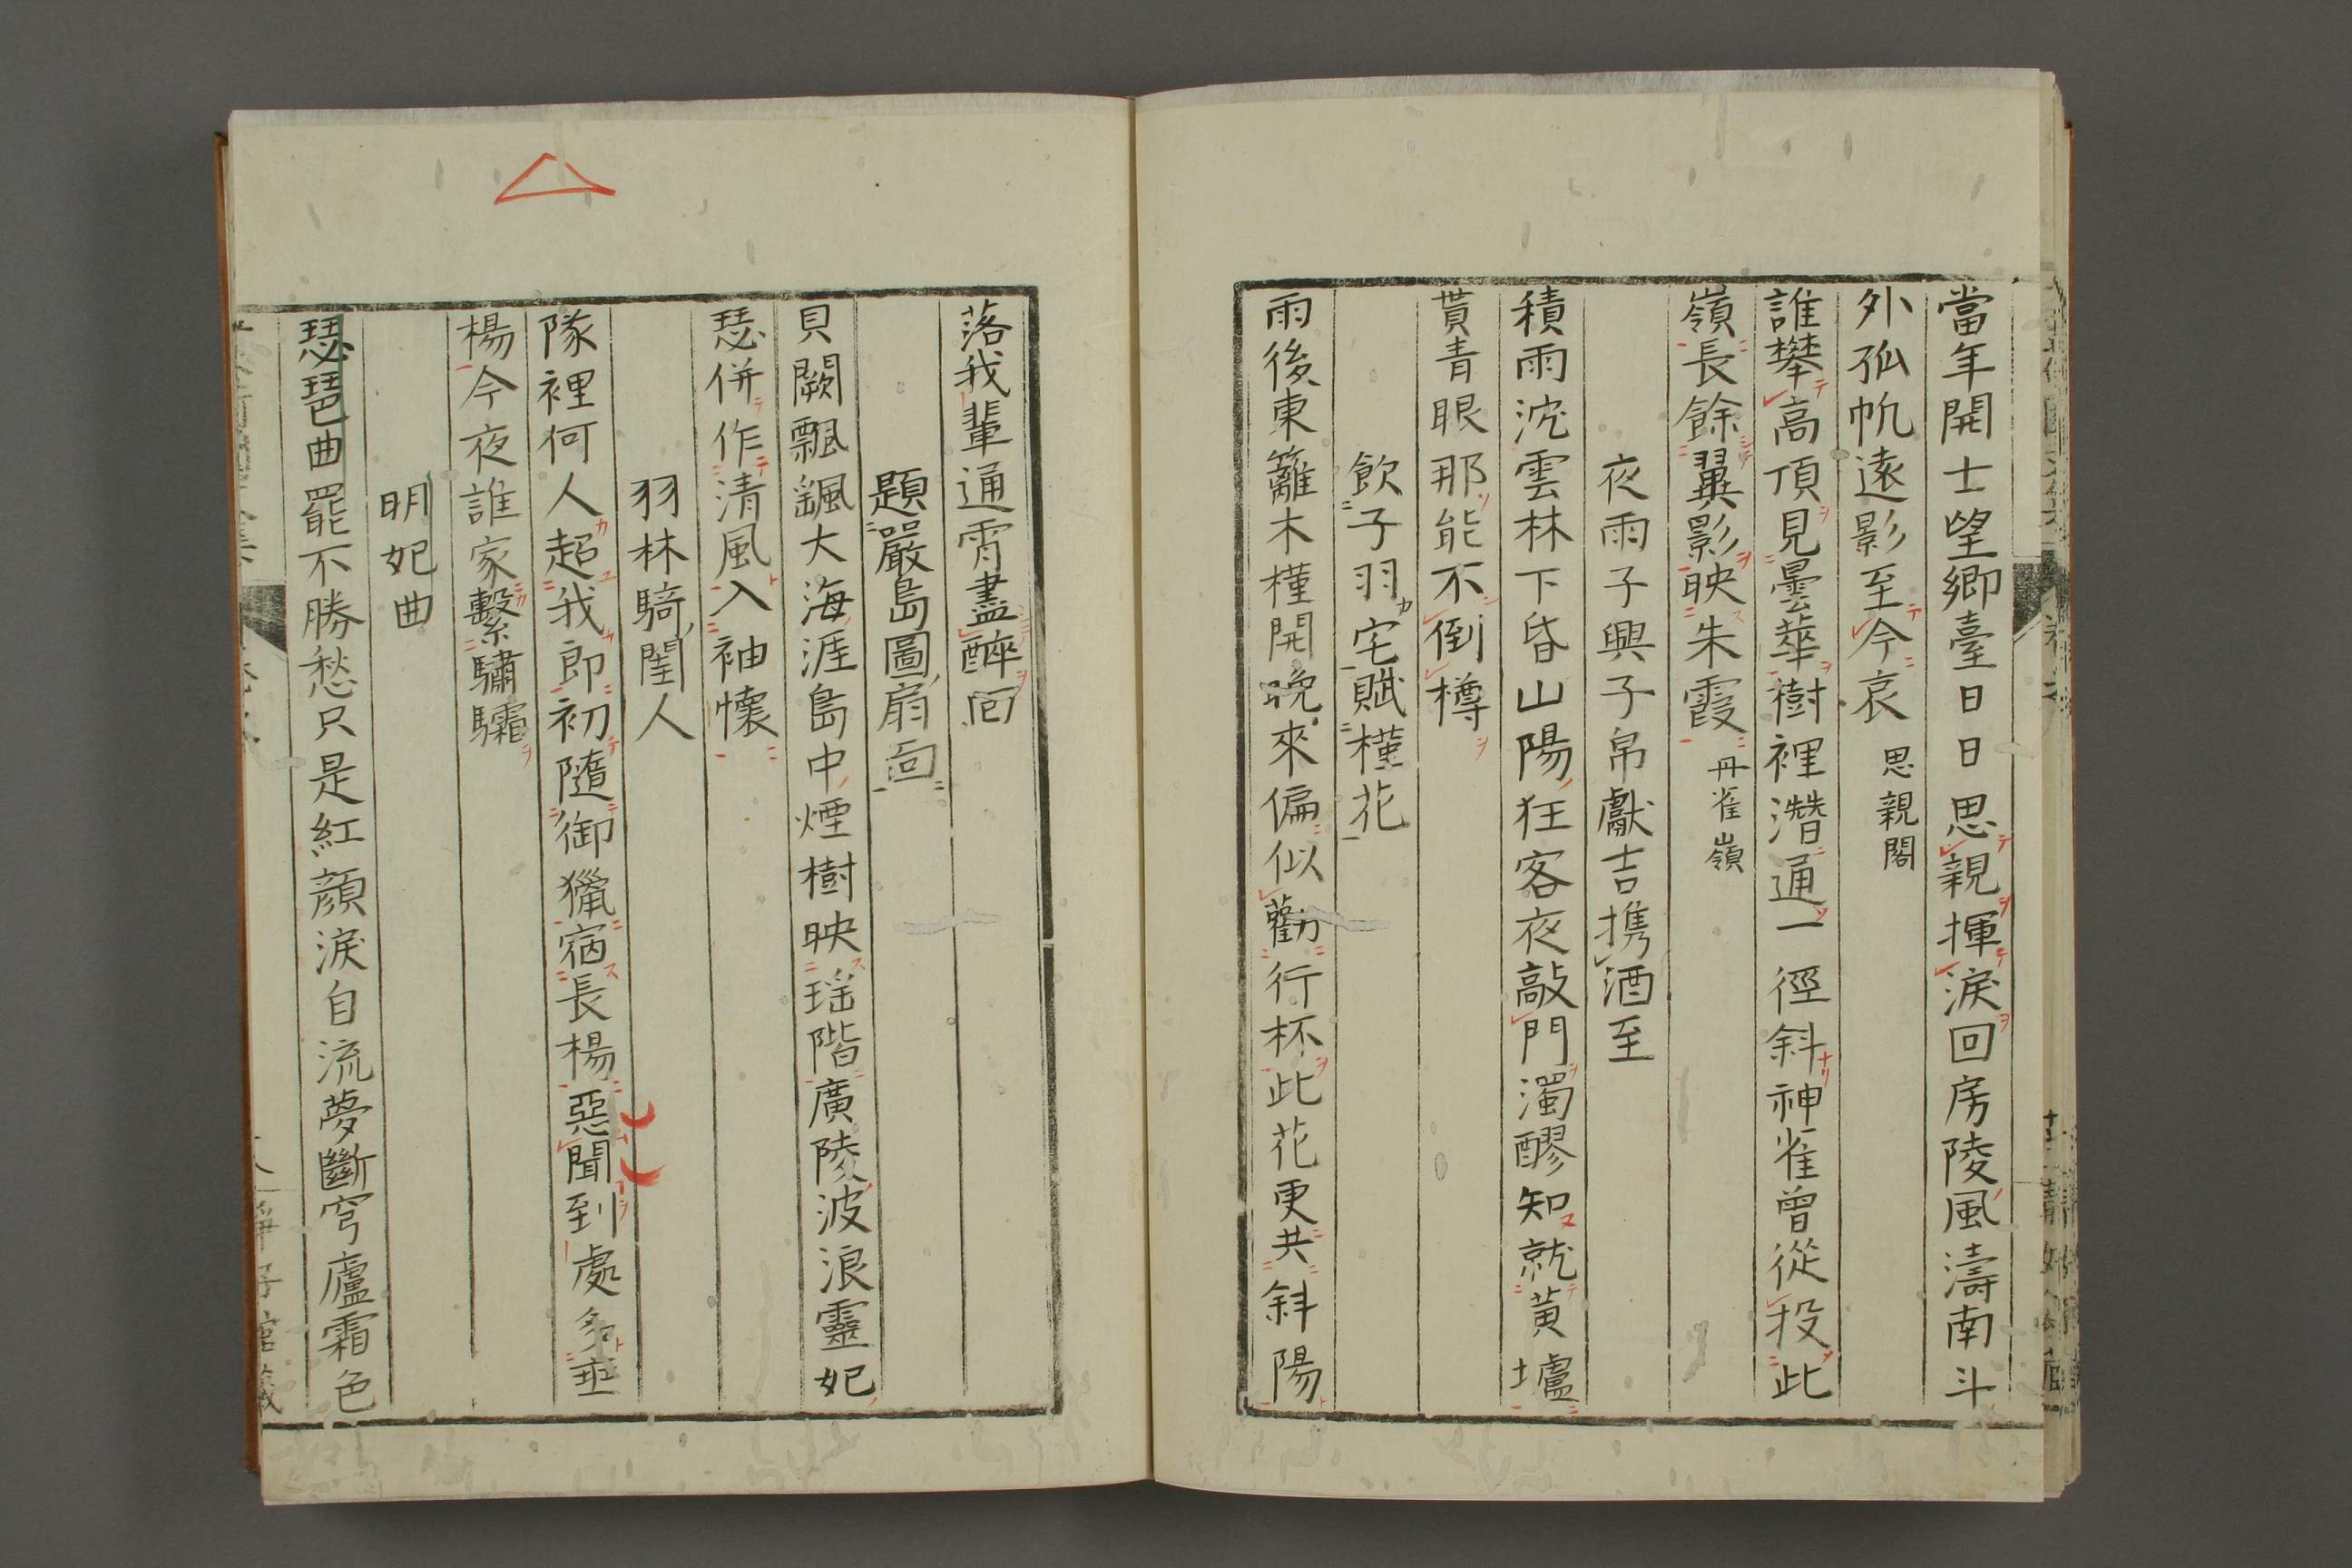 當年開士望郷臺日日思親揮淚回房陵風濤南斗
外孤帆遠影至今哀 思親閣
誰攀高頂見曇華樹裡潛通一徑斜神雀曾從投此
嶺長餘翼影映朱霞 丹雀嶺
夜雨子興子帛獻吉携酒至
積雨沈雲林下昏山陽狂客夜敲門濁醪知就黃壚
貰青眼那能不倒樽
飲子羽宅賦槿花
雨後東籬木槿開晚來偏似勸行杯此花更共斜陽
落我輩通宵盡醉回
題嚴島圖扇面
貝闕飄颻大海涯島中煙樹映瑶階廣陵波浪靈妃
瑟併作清風入袖懷
羽林騎閨人
隊裡何人超我郎初隨御獵宿長楊惡聞到處多垂
楊今夜誰家繫驌驦
明妃曲
琵琶曲罷不勝愁只是紅顔淚自流夢斷穹廬霜色